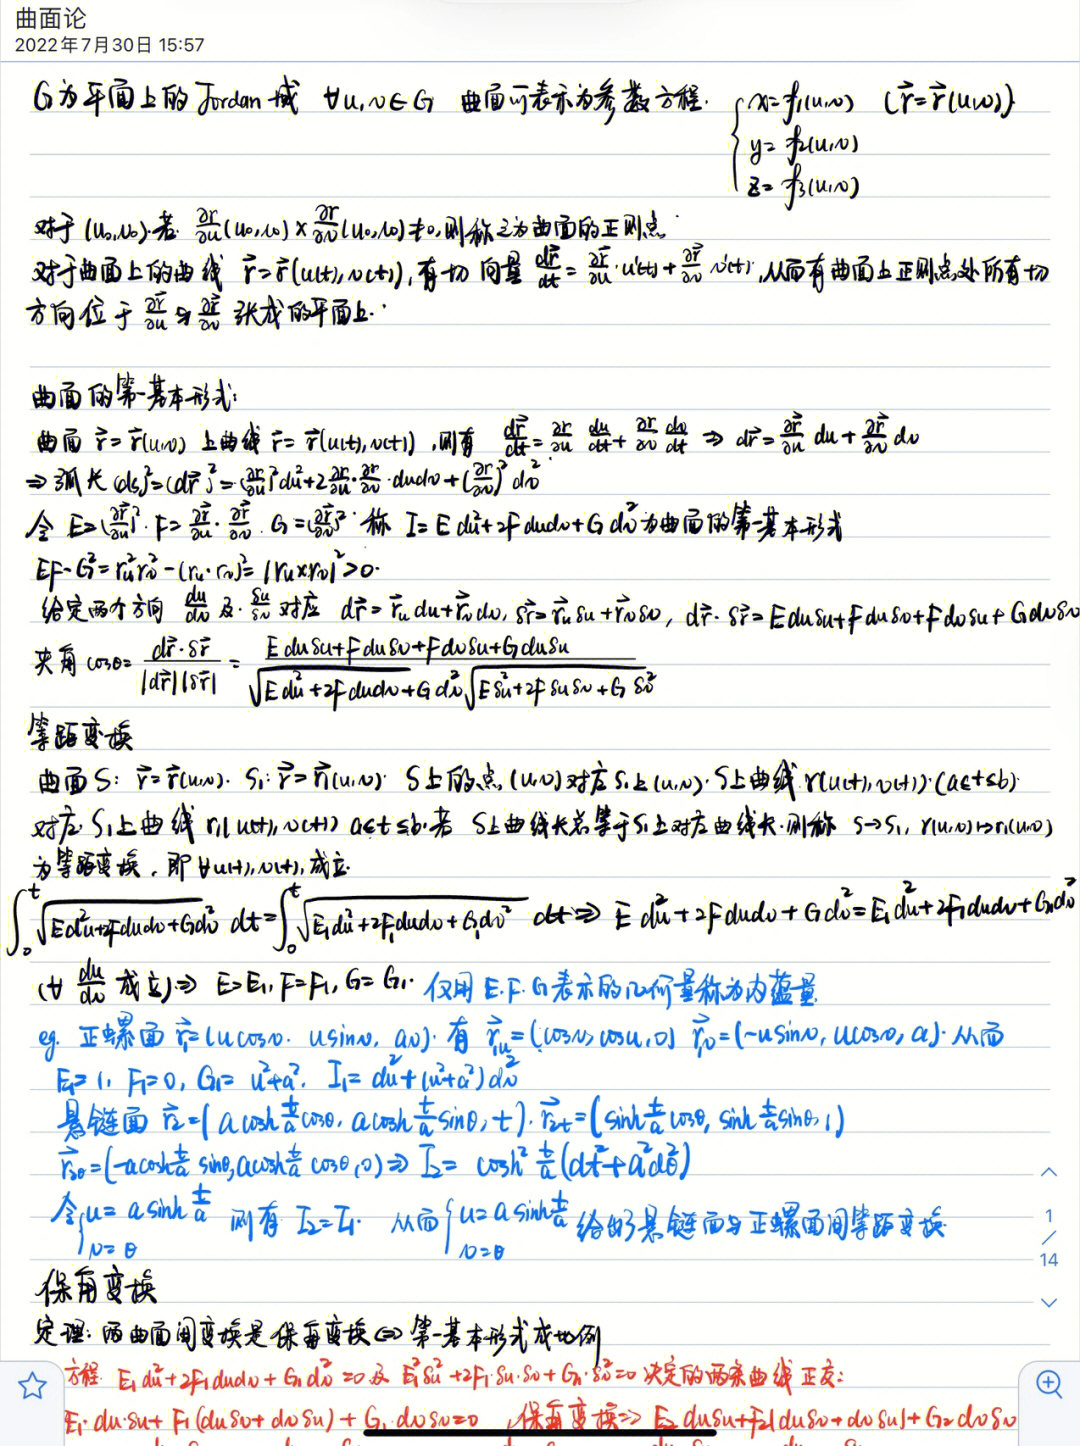 曲面论
2022年7月30日 15:57
G为平面上的Jordan域 ∀u,v∈G 曲面可表示为参数方程. { x=f₁(u,v) (r⃗=r⃗(u,v))
y=f₂(u,v)
z=f₃(u,v)
对于(u₀,v₀).若 ∂r/∂u(u₀,v₀)×∂r/∂v(u₀,v₀)≠0,则称之为曲面的正则点.
对于曲面上的曲线 r⃗=r⃗(u(t),v(t)),有切向量 dr⃗/dt=∂r⃗/∂u·u'(t)+∂r⃗/∂v v'(t).从而有曲面上正则点处所有切
方向位于 ∂r⃗/∂u 与 ∂r⃗/∂v 张成的平面上.
曲面的第一基本形式:
曲面 r⃗=r⃗(u,v) 上曲线 r⃗=r⃗(u(t),v(t)),则有 dr⃗/dt=∂r/∂u du/dt+∂r/∂v dv/dt ⇒ dr⃗=∂r⃗/∂u du+∂r⃗/∂v dv
⇒弧长(ds)²=(dr⃗)²=(∂r/∂u)²du²+2∂r/∂u·∂r/∂v·dudv+(∂r/∂v)²dv²
令 E=(∂r⃗/∂u)². F=∂r⃗/∂u·∂r⃗/∂v. G=(∂r⃗/∂v)². 称 I=Edu²+2Fdudv+Gdv²为曲面的第一基本形式
EF-G²=rᵤ²rᵥ²-(rᵤ·rᵥ)²=|rᵤ×rᵥ|²>0.
给定两个方向 du/dv 及 δu/δv 对应 dr⃗=r⃗ᵤdu+r⃗ᵥdv, δr⃗=r⃗ᵤδu+r⃗ᵥδv, dr⃗·δr⃗=Eduδu+Fduδv+Fdvδu+Gdvδv
夹角cosθ=dr⃗·δr⃗/|dr⃗||δr⃗|=Eduδu+Fduδv+Fdvδu+Gduδu/√Edu²+2Fdudv+Gdv²√Eδu²+2Fδuδv+Gδv²
等距变换
曲面S: r⃗=r⃗(u,v). S₁: r⃗=r⃗₁(u,v). S上的点(u,v)对应S₁上(u,v).S上曲线r(u(t),v(t))(a≤t≤b)
对应S₁上曲线r₁(u(t),v(t)) a≤t≤b.若 S上曲线长总等于S₁上对应曲线长.则称 S→S₁, r(u,v)↦r₁(u,v)
为等距变换,即∀u(t),v(t),成立
∫₀ᵗ√Edu²+2Fdudv+Gdv² dt=∫₀ᵗ√E₁du²+2F₁dudv+G₁dv² dt⇒ Edu²+2Fdudv+Gdv²=E₁du²+2F₁dudv+G₁dv²
(∀ du/dv 成立)⇒ E=E₁,F=F₁,G=G₁. 仅用E.F.G表示的几何量称为内蕴量
eg. 正螺面 r⃗₁=(ucosv. usinv, av).有 r⃗₁ᵤ=(cosv,cosu,0) r⃗₁ᵥ=(-usinv,ucosv,a).从而
E₁=1, F₁=0, G₁=u²+a². I₁=du²+(u²+a²)dv²
悬链面 r⃗₂=(acosh t/a cosθ, acosh t/a sinθ, t). r⃗₂ₜ=(sinh t/a cosθ, sinh t/a sinθ, 1)
r⃗₂θ=(-acosh t/a sinθ,acosh t/a cosθ,0)⇒ I₂=cosh² t/a(dt²+a²dθ²)
令{u=asinh t/a 则有 I₂=I₁. 从而{u=asinh t/a 给出悬链面与正螺面间等距变换
v=θ v=θ
1
/
14
保角变换
定理:两曲面间变换是保角变换⇔第一基本形式成比例
方程 E₁du²+2F₁dudv+G₁dv²=0及 E₁δu²+2F₁·δu·δv+G₁·δv²=0决定的两条曲线正交:
E₁·du·δu+F₁(duδv+dvδu)+G₁·dvδv=0 .保角变换⇒ E₂duδu+F₂(duδv+dvδu)+G₂dvδv